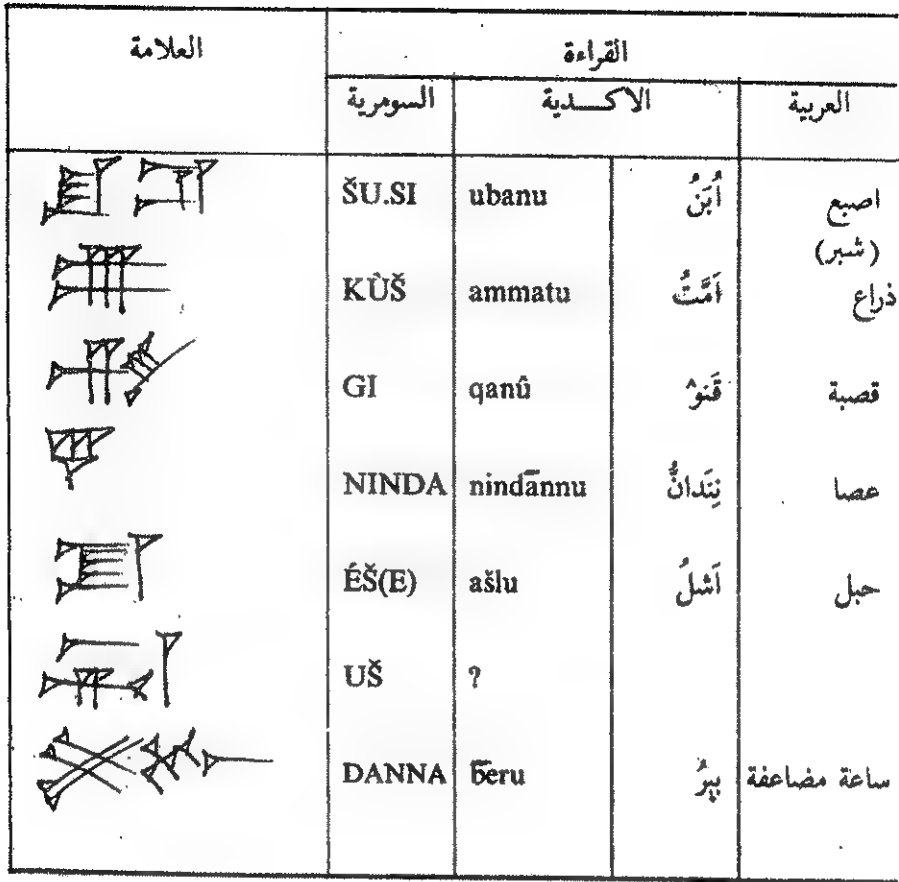 العلامة القراءة
السومرية الاكـــدية العربية
ŠU.SI ubanu أُبَنُ اصبع
(شبر)
KÙŠ ammatu اَمَّتُ ذراع
GI qanû قَنو قصبة
NINDA nindānnu نِنَدانُّ عصا
ÉŠ(E) ašlu اَشلُ حبل
UŠ ?
DANNA bēru بيرُ ساعة مضاعفة